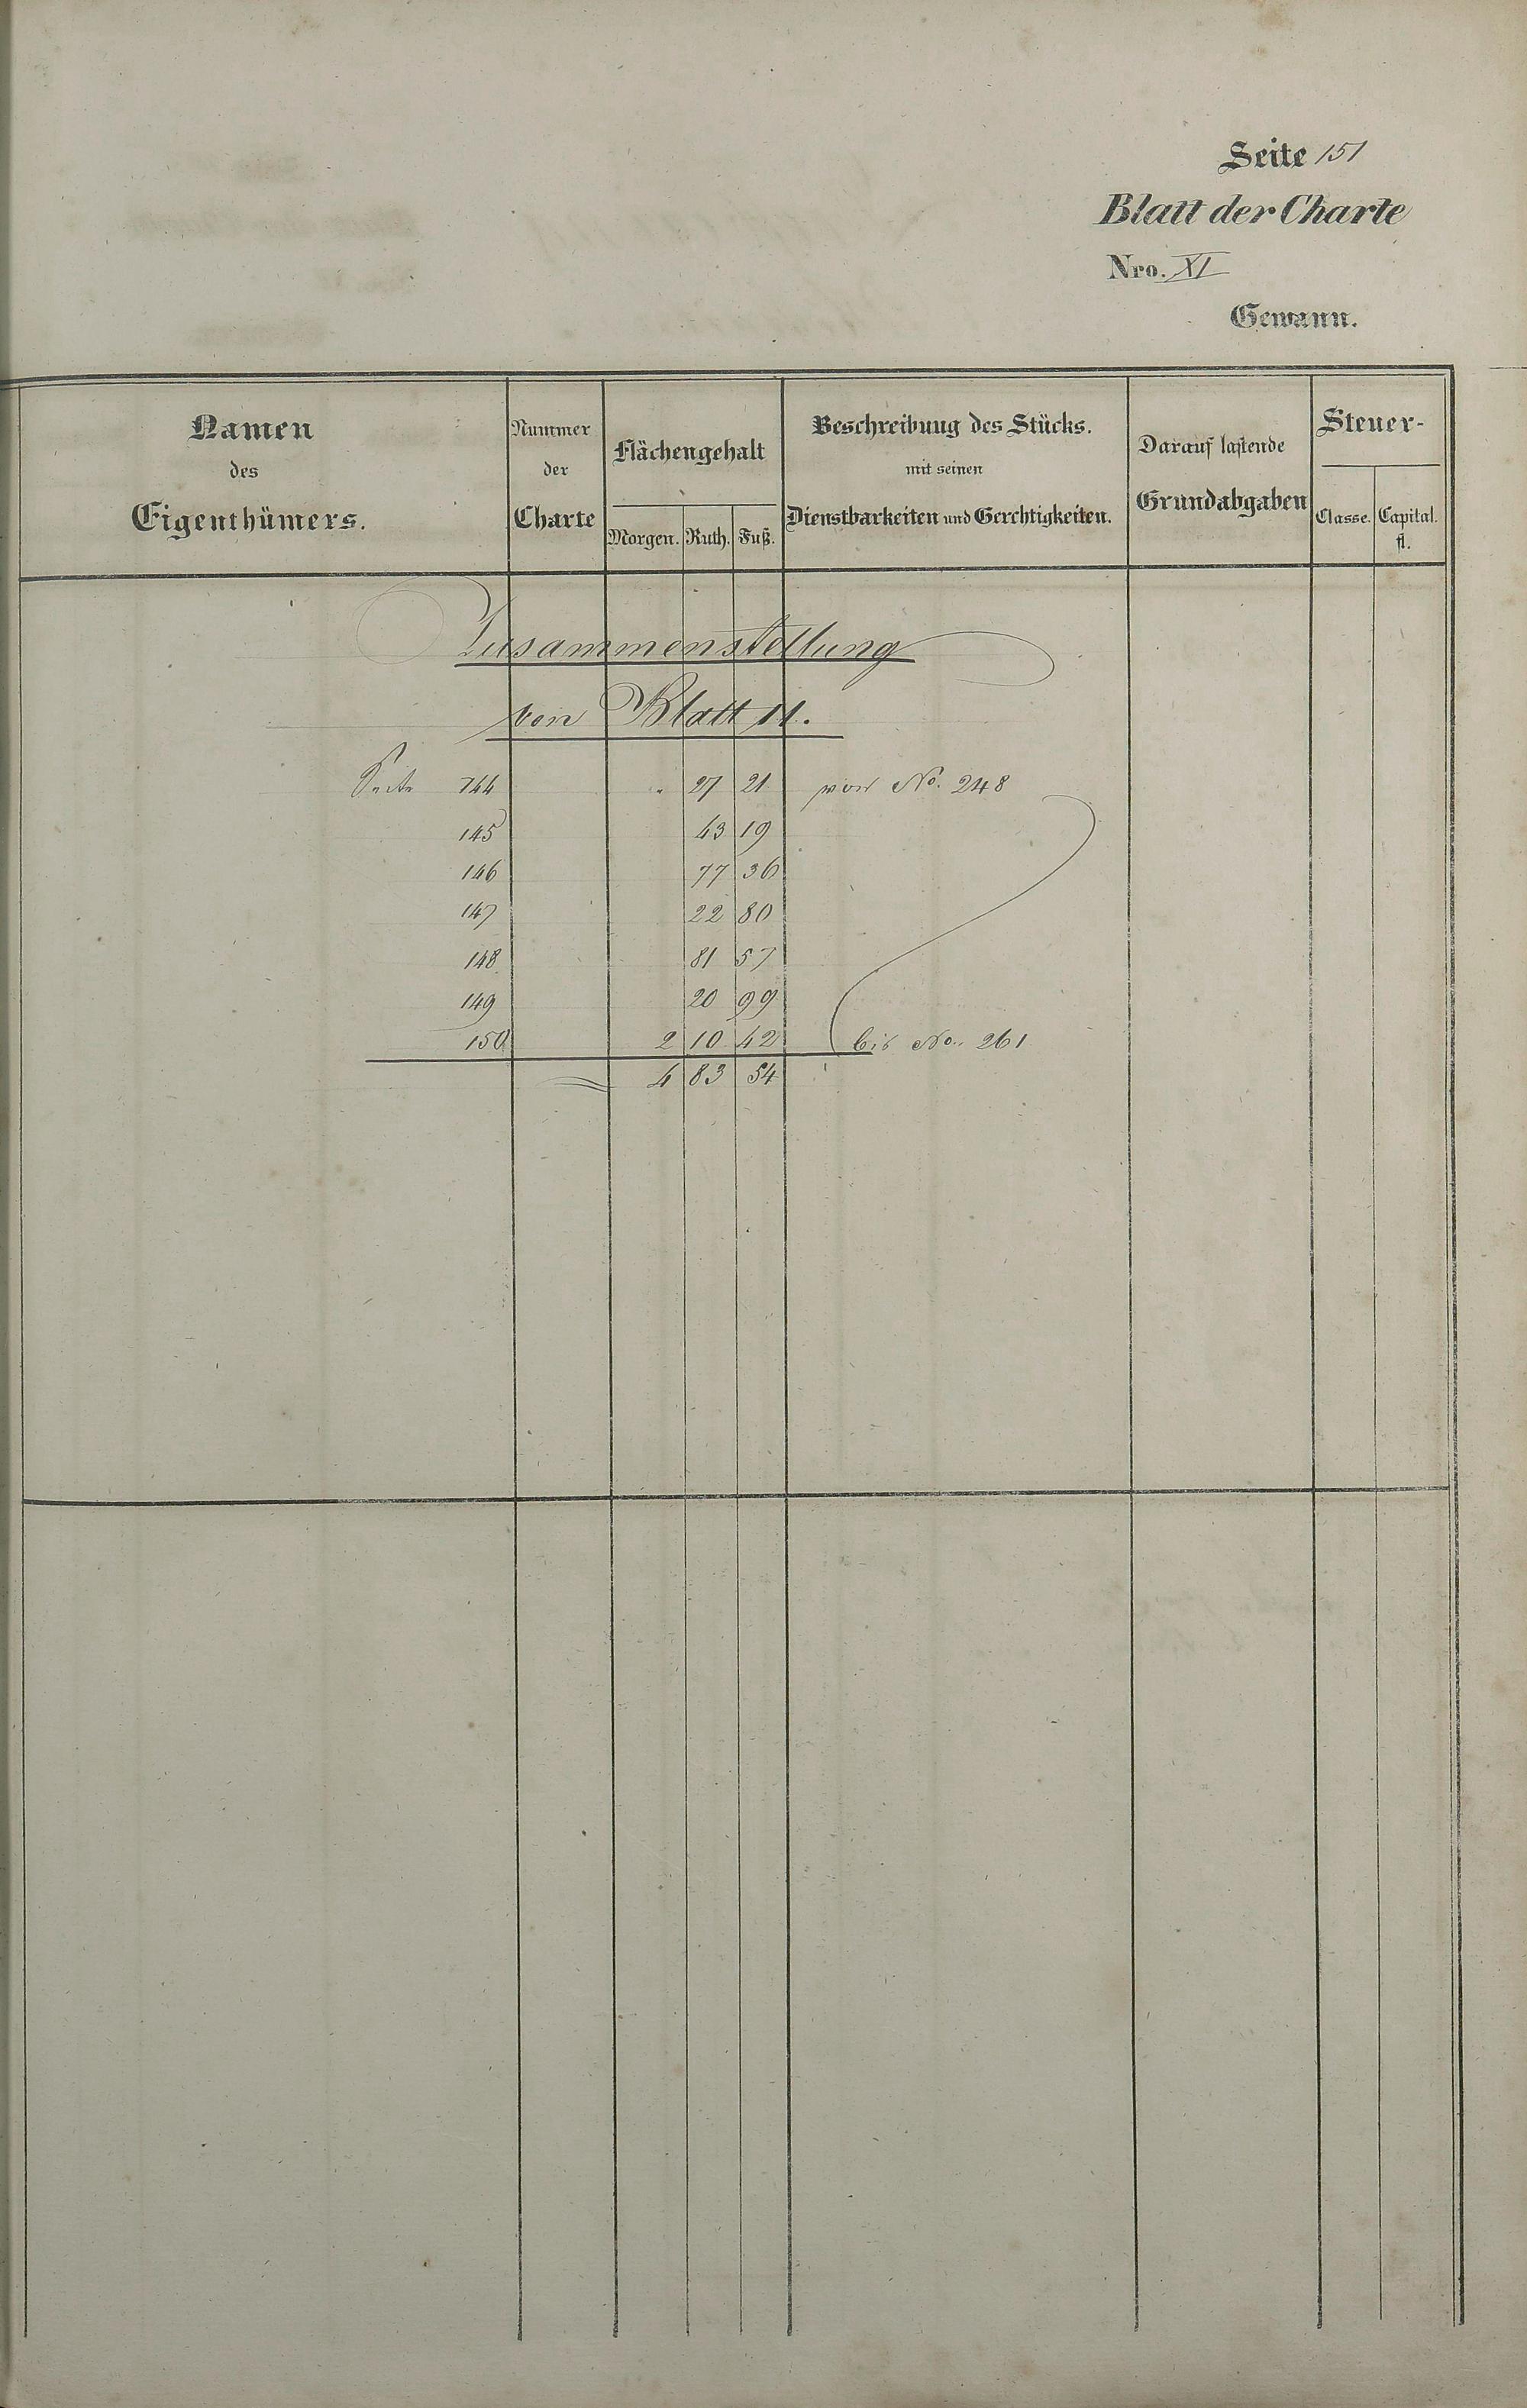 Seite 151
Blatt der Charte
Nro. XI
Gewann.
Namen
des
Eigenthümers.
Nummer
der
Charte
Flächengehalt
Morgen. Ruth. Fuß.
Beschreibung des Stücks.
mit seinen
Dienstbarkeiten und Gerechtigkeiten.
Darauf lastende
Grundabgaben
Steuer-
Classe. Capital.
fl.
Zusammenstellung
von Blatt 11.
Seite 144 " 27 21 von No. 248
145 43 19
146 77 36
147 22 80
148 81 57
149 20 99
150 2 10 42 bis No. 261
4 83 54